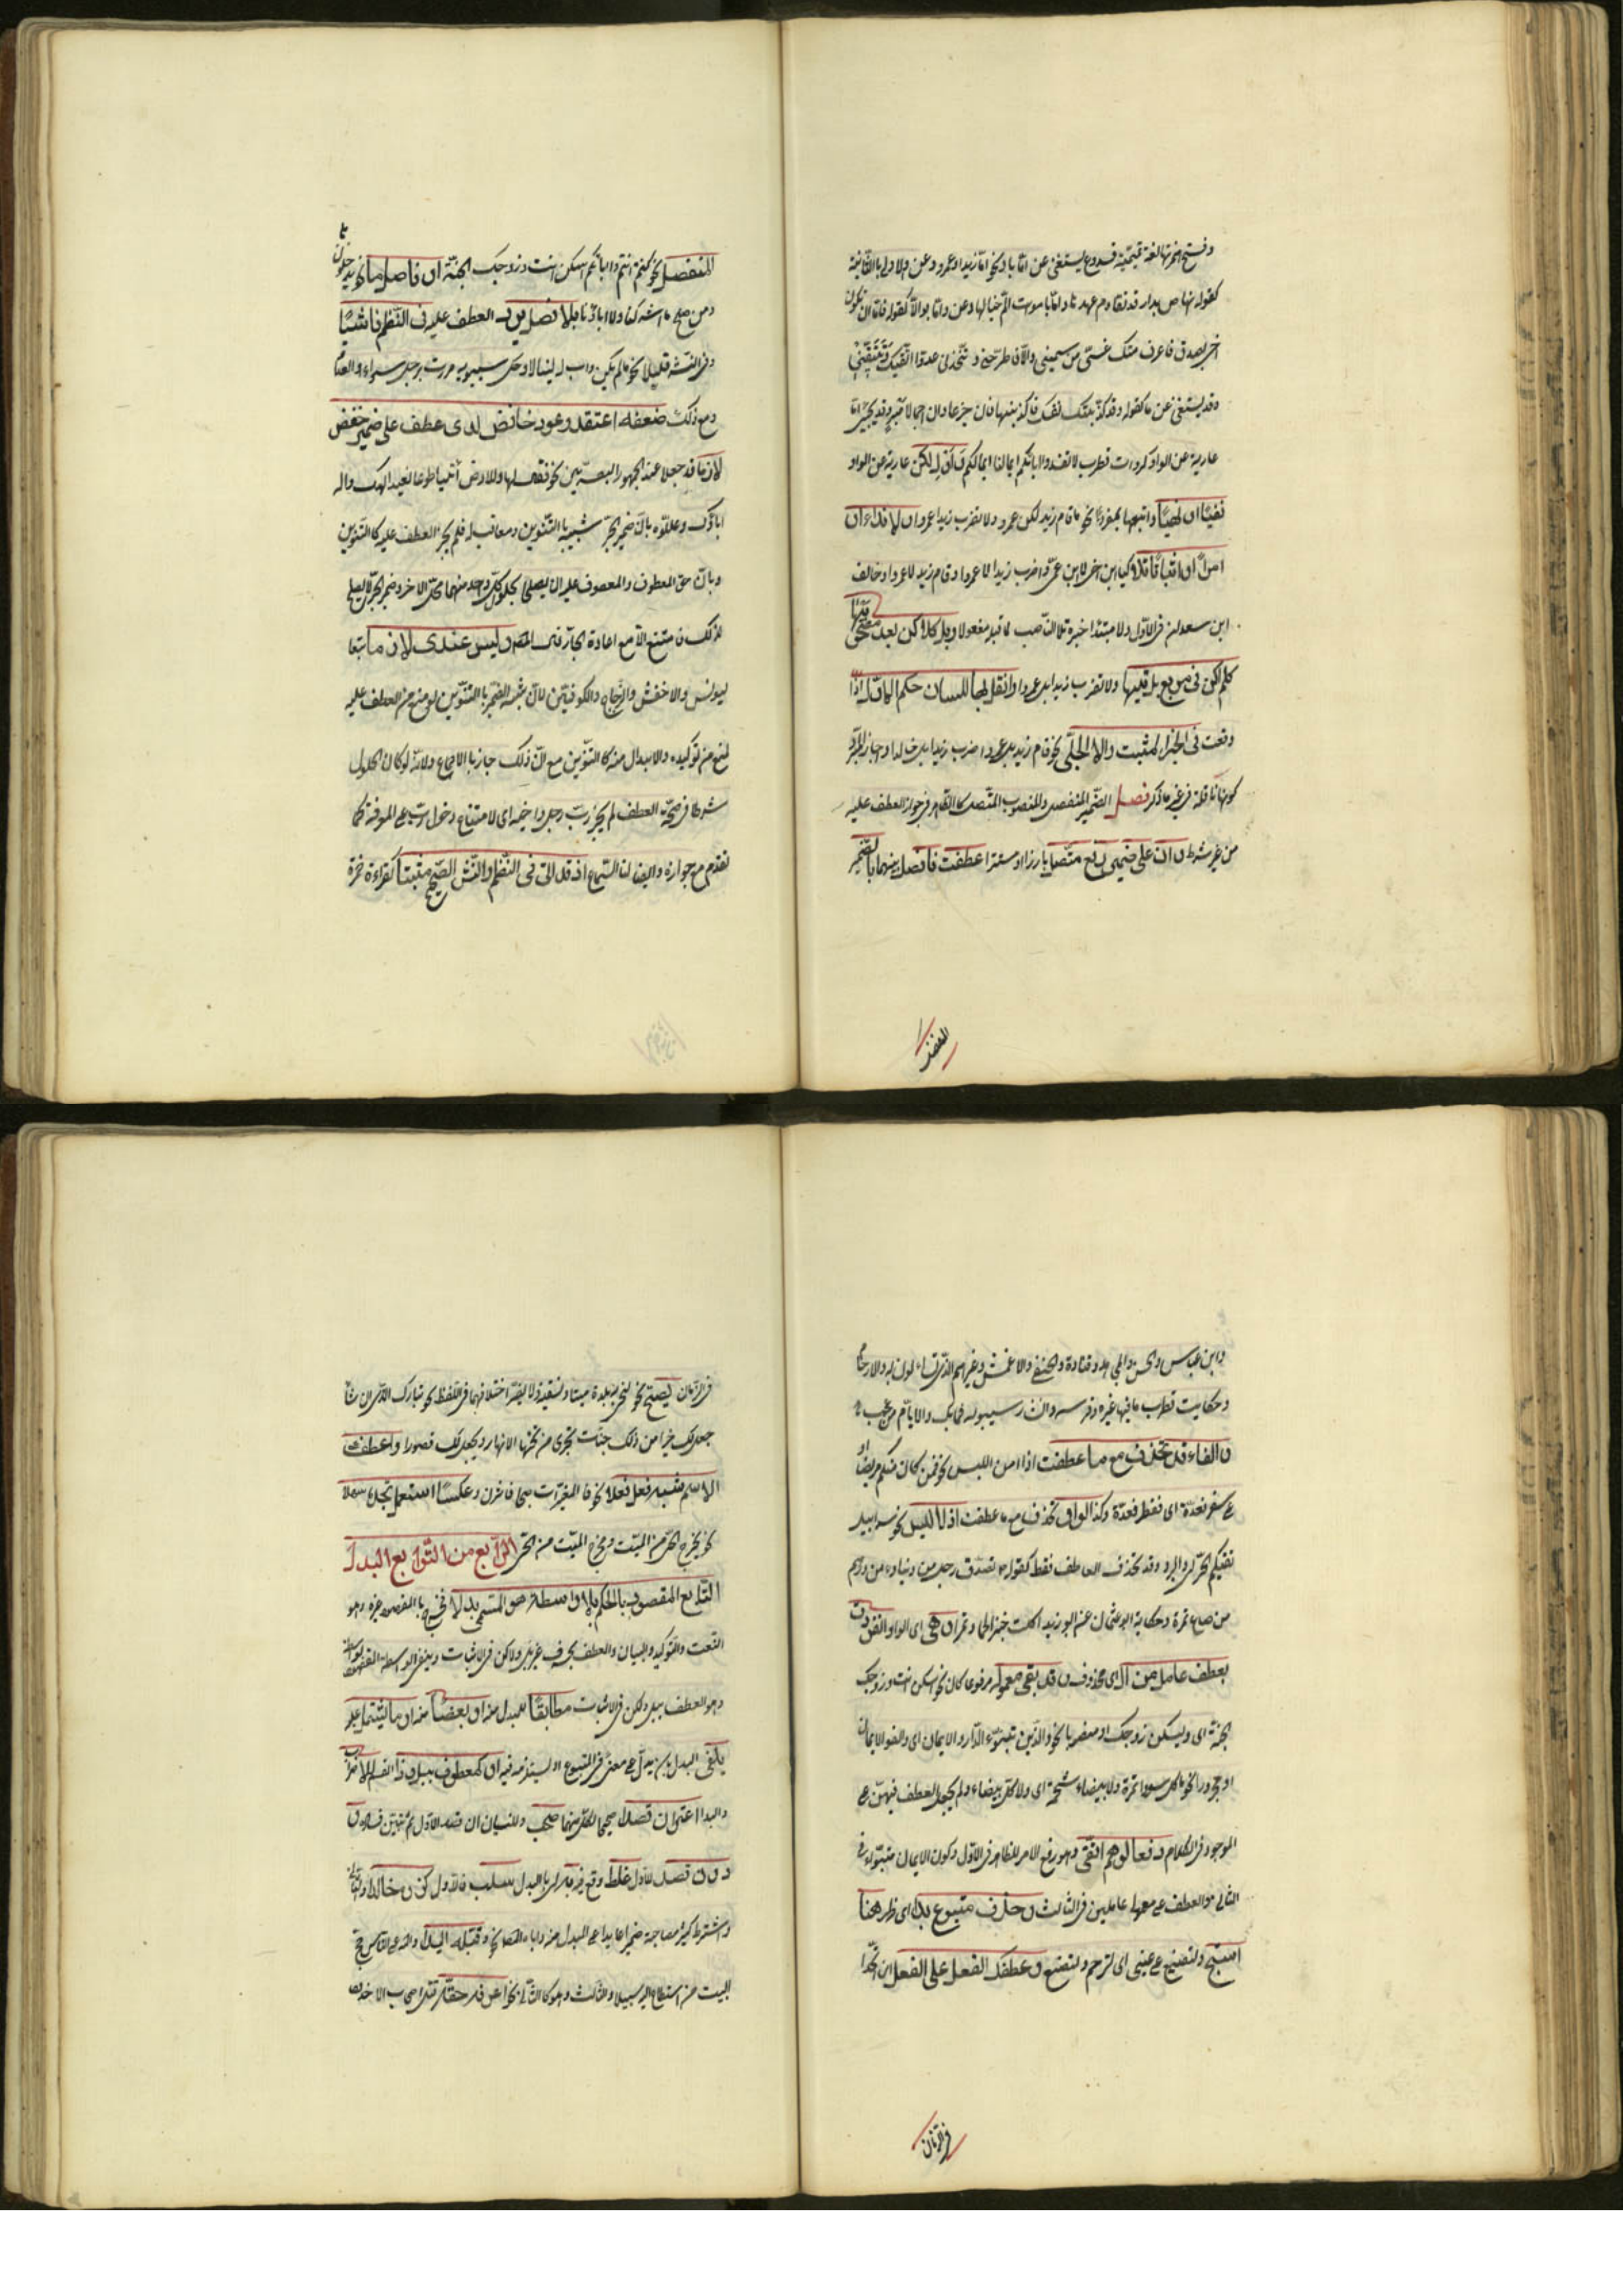 و فتح همزتها لغة تميمية فـ وع يستغنى عن اما باو نحو اما زيد او عمرو و عن الاولى بالثانية
كقوله تهاض بدار قد تقادم عهدها و اما باموات الم خيالها و عن و اما بوالا كقوله فاما ان تكون
اخي بصدق فاعرف منك غثي من سميني و الا فاطرحني و اتخذني عدوا اتقيك و تتقيني
و قد يستغنى عن ما كقوله و قد كذبتك نفسك فاكذبنها فان جزعا و ان اجمال صبر و قد يجئ اما
عارية عن الواو كروات قطرب لا تفسدوا ابالكم ايما لنا ايما لكم و اول لكن عارية عن الواو
نفيا او نهيا و اتبعها بمفرد نحو ما قام زيد لكن عمرو و لا تضرب زيدا لكن عمروا و لا نداء او
امرا او اثباتا تلا كيا ابن اخي لا ابن عمي و اضرب زيدا لا عمروا و قام زيد لا عمرو و خالف
ابن سعدان في الاول و لا مبتدا خبره تلا النصب لما قبله مفعولا و بل كلكن بعد مصحوبيها
كلم اكن في مربع بل تيها و لا تضرب زيدا بل عمروا و انقل بها للثان حكم الاول اذا
وقعت في الخبر المثبت و الامر الجلي نحو قام زيد بل عمرو و اضرب زيدا بل خالدا و اجاز المبرد
كونها ناقلة في غير ما ذكر فصل الضمير المنفصل و المنصوب المتصل كالظاهر في جواز العطف عليه
من غير شرط و ان على ضمير رفع متصل بارزا او مستترا عطفت فافصل بينهما بالضمير
المنفصل
المنفصل نحو كنتم انتم و اباؤكم اسكن انت و زوجك الجنة او فاصل ما نحو يدخلونها
و من صلح ما اشركنا و لا اباؤنا و بلا فصل يرد العطف عليه في النظم فاشيا
و في النثر قليلا نحو ما لم يكن و اب له لينالا و حكى سيبويه مررت برجل سواء و العدم
و مع ذلك ضعفه اعتقد و عود خافض لدى عطف على ضمير خفض
لازما قد جعلا عند الجمهور البصريين نحو فقال لها و للارض ائتيا طوعا نعبد الهك و اله
ابائك و عللوه بان ضمير الجر شبيه بالتنوين و معاقب له فلم يجز العطف عليه كالتنوين
و بان حق المعطوف و المعطوف عليه ان يصلحا لحلول كل واحد منهما محل الاخر و ضمير الجر لا يصلح
لذلك فامتنع الا مع اعادة الجار قال المصنف و ليس عندى لازما تبعا
ليونس و الاخفش و الزجاج و الكوفيين لان شبه الضمير بالتنوين لو منع من العطف عليه
لمنع من توكيده و الابدال منه كالتنوين مع ان ذلك جايز بالاجماع و لانه لو كان الحلول
شرطا في صحة العطف لم يجز رب رجل و اخيه اى لامتناع دخول رب على المعرفة كما
تقدم مع جوازه و ايضا لنا السماع اذ قد اتى في النظم و النثر الصحيح مثبتا كقراءة حمزة
و ابن عباس و الحسن و مجاهد و قتادة و النخعي و الاعمش و غيرهم الذى تساءلون به و الارحام
و حكاية قطرب ما فيها غيره و فرسه و انشد سيبويه فما بك و الايام من عجب
و الفاء قد تحذف مع ما عطفت اذا امن اللبس نحو فمن كان منكم مريضا او
على سفر فعدة اى فافطر فعدة و كذا الواو تحذف مع ما عطفت اذ لا لبس نحو سرابيل
تقيكم الحر اى و البرد و قد تحذف العاطف فقط كقوله تصدق رجل من ديناره من درهمه
من صاع تمره و حكاية ابو عثمان عن ابو زيد اكلت خبزا لحما و تمرا و هى اى الواو انفردت
بعطف عامل مزال اى محذوف و قد بقى معموله مرفوعا كان نحو اسكن انت و زوجك
الجنة اى و ليسكن زوجك او منصوبا نحو و الذين تبوءوا الدار و الايمان اى و الفوا الايمان
او مجرورا نحو ما كل سوداء تمرة و لا بيضاء شحمة اى و لا كل بيضاء و لم يجعل العطف فيهن على
الموجود في الكلام دفعا لوهم اتقي و هو رفع الامر للظاهر في الاول و كون الايمان متبوءا في
الثانى و العطف على معمولى عاملين في الثالث و حذف متبوع بدا اى ظهر هنا
استبح و لتصنع على عينى اى لترحم و لتصنع و عطفك الفعل على الفعل ان اتحدا
في الزمان
في الزمان يصح نحو لنحيى به بلدة ميتا و نسقيه و لا يضر اختلافهما في اللفظ نحو تبارك الذى ان شاء
جعل لك خيرا من ذلك جنات تجرى من تحتها الانهار و يجعل لك قصورا و اعطف على
اسم شبه فعل فعلا نحو فالمغيرات صبحا فاثرن و عكسا استعمل تجده سهلا
نحو يخرج الحى من الميت و مخرج الميت من الحى الرابع من التوابع البدل
التابع المقصود بالحكم بلا واسطة هو المسمى بدلا فخرج بالمقصود غيره و هو
النعت و التوكيد و البيان و العطف بحرف غير بل و لكن في الاثبات و بنفى الواسطة المقصود بواسطة
و هو العطف ببل و لكن في الاثبات مطابقا للمبدل منه او بعضا منه او ما يشتمل عليه
يلفى البدل بان يدل على معنى في المتبوع او يستلزمه فيه او كمعطوف ببل و ذا القسم للاضراب
و البداء اعز ان قصدا صحيحا لكل منهما صحب و للنسيان ان قصد الاول ثم تبين فساده و
دون قصد للاول غلط وقع فيه به اى بالبدل سلب فالاول كزره خالدا و الثانى
و اشترط كثير مصاحبة ضميرا عايدا على المبدل منه و اباه المصنف نحو و قبله اليدا و لله على الناس حج
البيت من استطاع اليه سبيلا و الثالث و هو كالثانى نحو اعرفه حقه قتل اصحاب الاخدود